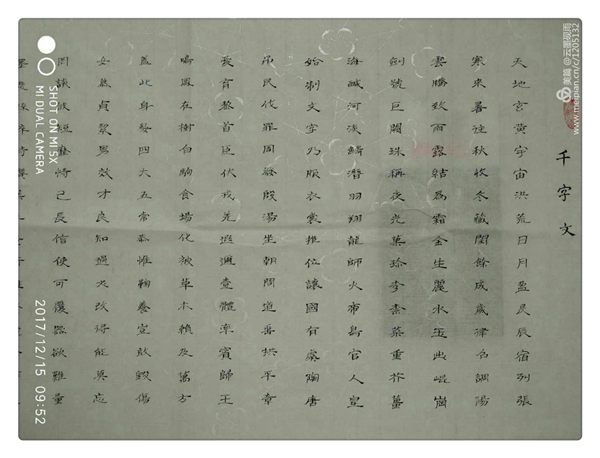 千字文
天地玄黄宇宙洪荒日月盈昃辰宿列張
寒来暑往秋收冬藏閏餘成歲律召調陽
雲騰致雨露結為霜金生麗水玉出崐崗
劍號巨闕珠稱夜光菓珍李柰菜重芥薑
海鹹河淡鱗潛羽翔龍師火帝鳥官人皇
始制文字乃服衣裳推位讓國有虞陶唐
弔民伐罪周發殷湯坐朝問道垂拱平章
愛育黎首臣伏戎羌遐邇壹體率賓歸王
鳴鳳在樹白駒食場化被草木賴及萬方
蓋此身髮四大五常恭惟鞠養豈敢毀傷
女慕貞絜男效才良知過必改得能莫忘
罔談彼短靡恃己長信使可覆器欲難量
SHOT ON MI 5X
MI DUAL CAMERA
2017/12/15 09:52
美篇 @云墨砚雨
www.meipian.cn/c/1205132